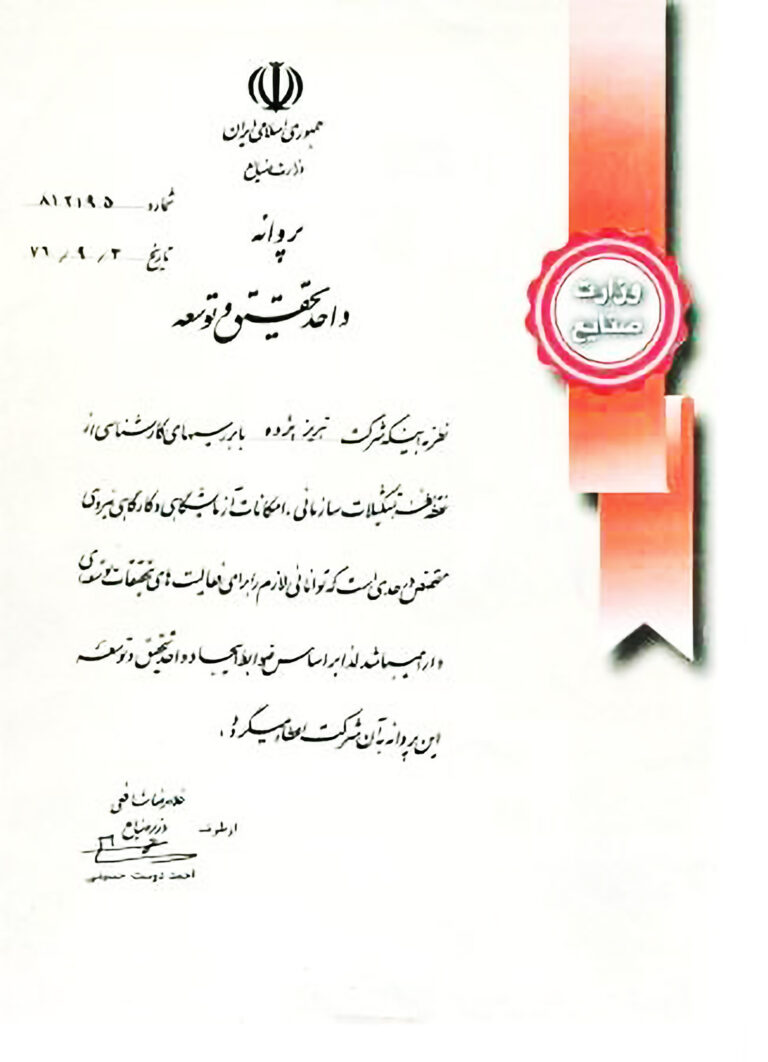 جمهوری اسلامی ایران
وزارت صنایع
شماره ۸۱۲۱۹۵
تاریخ ۷۶/۹/۳
پروانه
واحد تحقیق و توسعه
وزارت
صنایع
نظر به اینکه شرکت تبریز پژده با بررسیهای کارشناسی از
نقطه نظر تشکیلات سازمانی، امکانات آزمایشگاهی و کارگاهی نیروی
متخصص در حدی است که توانائی لازم را برای فعالیت های تحقیقات توسعه‌ای
دارا میباشد لذا بر اساس ضوابط ایجاد واحد تحقیق و توسعه
این پروانه به آن شرکت اعطاء میگردد.
غلامرضا شافعی
وزیر صنایع
از طرف
احمد دوست حسینی